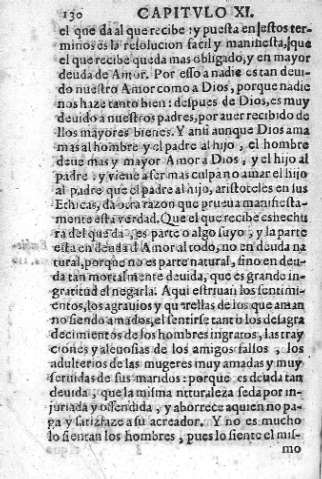 130 CAPITVLO XI.
el que da al que recibe: y puesta en estos ter-
minos es la resolucion facil y manifiesta, que
el que recibe queda mas obligado, y en mayor
deuda de Amor. Por esso a nadie es tan deui-
do nuestro Amor como a Dios, porque nadie
nos haze tanto bien: despues de Dios, es muy
deuido a nuestros padres, por auer recibido de
llos mayores bienes. Y ansi aunque Dios ama
mas al hombre y el padre al hijo, el hombre
deue mas y mayor Amor a Dios, y el hijo al
padre: y viene a ser mas culpa no amar el hijo
al padre que el padre al hijo, aristoteles en sus
Ethicas, da otra razon que prueua manifiesta-
mente esta verdad. Que el que recibe es hechu
ra del que da, es parte o algo suyo, y la parte
esta en deuda d Amor al todo, no en deuda na
tural, porque no es parte natural, sino en deu-
da tan mortalmente deuida, que es grande in-
gratitud el negarla. Aqui estriuan los sentimi-
entos, los agrauios y querellas de los que aman
no siendo amados, el sentirse tanto los desagra
decimientos de los hombres ingratos, las tray
ciones y aleuosias de los amigos falsos, los
adulterios de las mugeres muy amadas y muy
seruidas de sus maridos: porque es deuda tan
deuida, que la misma naturaleza se da por in-
juriada y offendida, y aborrece a quien no pa-
ga y satisfaze a su acreador. Y no es mucho
lo sientan los hombres, pues lo siente el mis-
mo